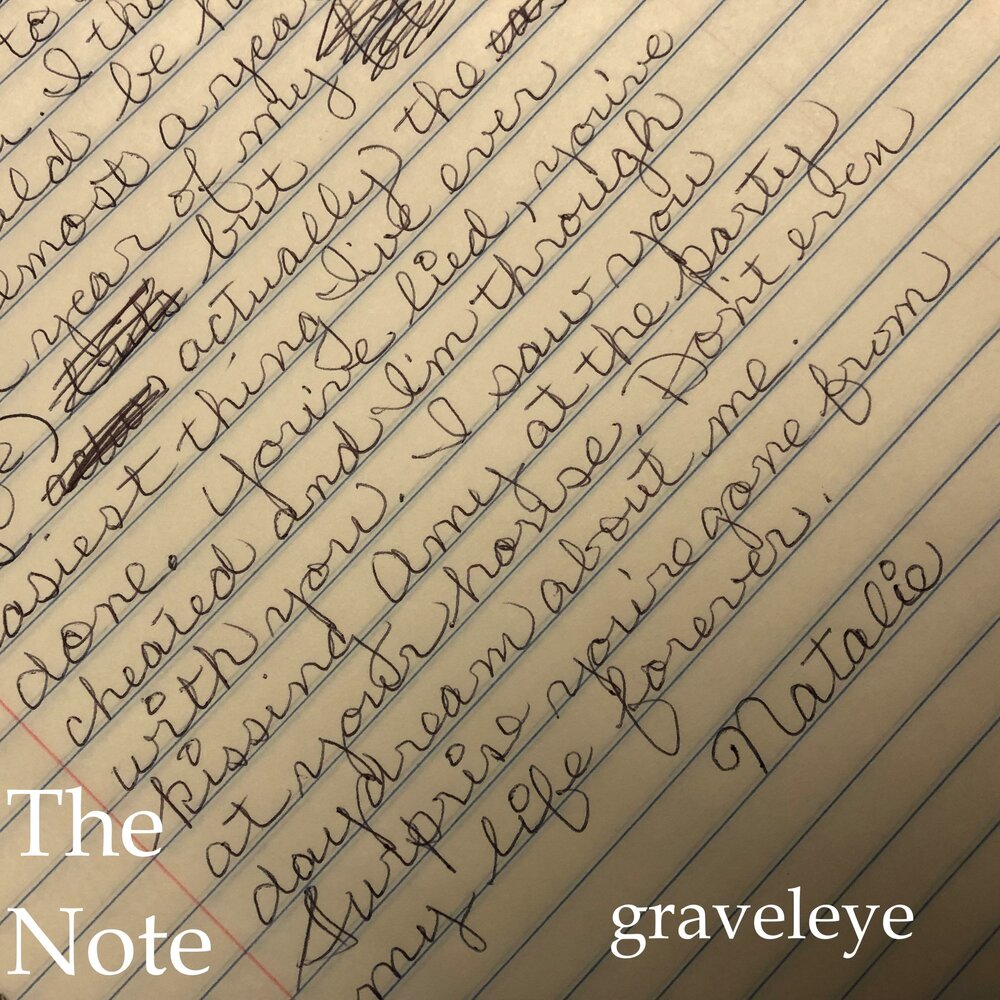 to
I the
be
a yea
year of my
but
actually the
easiest thing I've ever
done. You've lied, you've
cheated and I'm through
with you. I saw you
kissing Amy at the party
at your house. Don't even
daydream about me.
Surprise you're gone from
my life forever.
Natalie
The
Note
graveleye